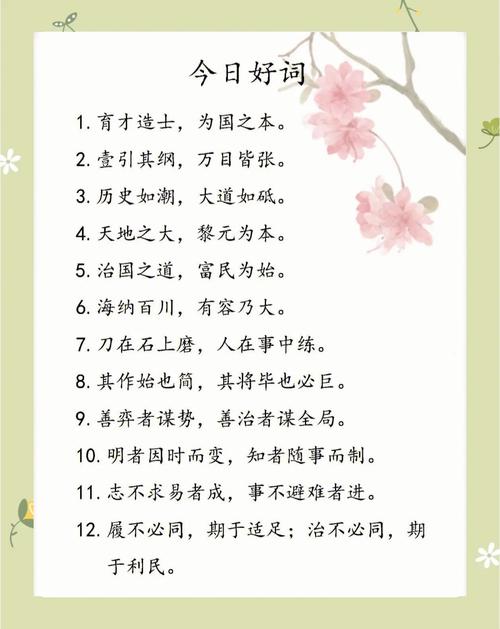 今日好词
1. 育才造士，为国之本。
2. 壹引其纲，万目皆张。
3. 历史如潮，大道如砥。
4. 天地之大，黎元为本。
5. 治国之道，富民为始。
6. 海纳百川，有容乃大。
7. 刀在石上磨，人在事中练。
8. 其作始也简，其将毕也必巨。
9. 善弈者谋势，善治者谋全局。
10. 明者因时而变，知者随事而制。
11. 志不求易者成，事不避难者进。
12. 履不必同，期于适足；治不必同，期
于利民。